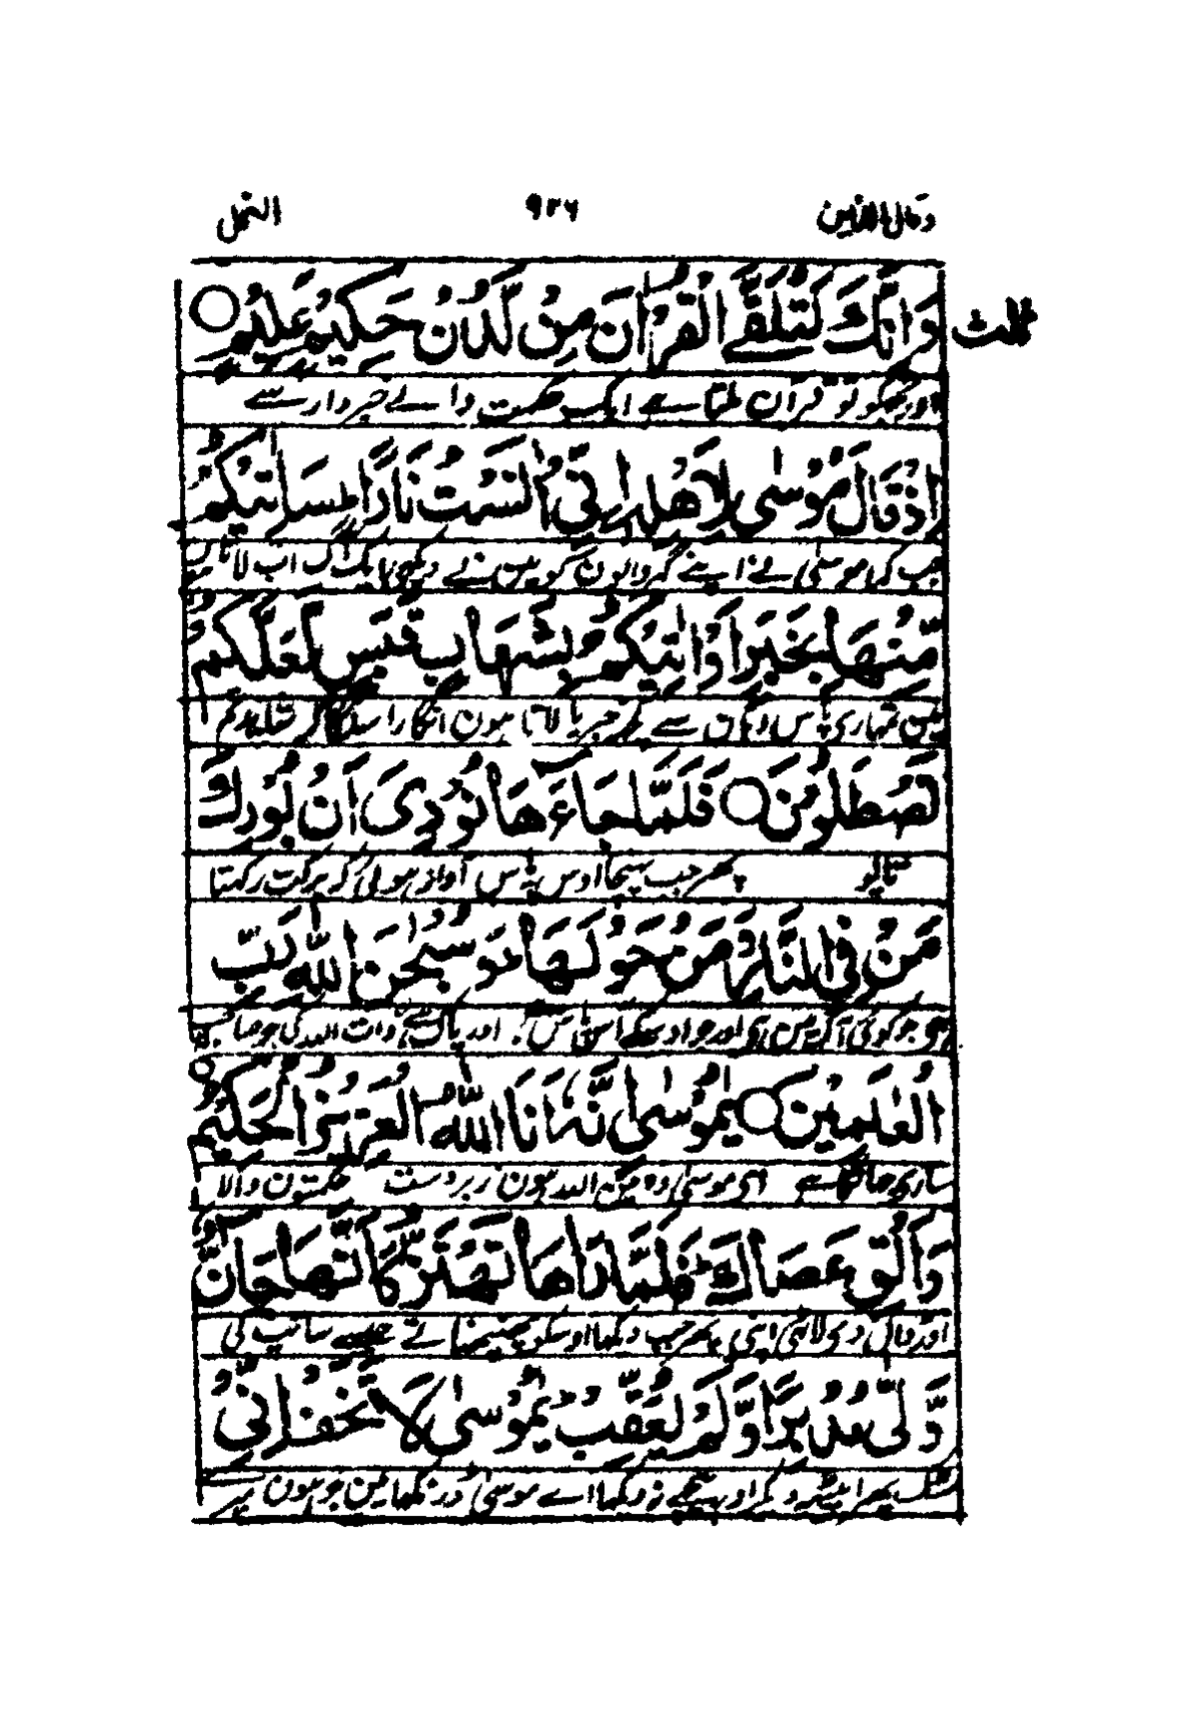 وقال الذين ٩٢٦ النمل
وَإِنَّكَ لَتُلَقَّى الْقُرْآنَ مِنْ لَّدُنْ حَكِيْمٍ عَلِيْمٍ ○
ثلث
اور تجھکو تو قرآن ملتا ہے ایک حکمت والے خبردار سے
اِذْ قَالَ مُوْسٰى لِاَهْلِهٖ اِنِّيْ اٰنَسْتُ نَارًا ط سَاٰتِيْكُمْ
جب کہا موسیٰ نے اپنے گھر والون کو مین نے دیکھی ایک آگ اب لاتا
مِّنْهَا بِخَبَرٍ اَوْ اٰتِيْكُمْ بِشِهَابٍ قَبَسٍ لَّعَلَّكُمْ
ہون تمہاری پاس وہان سے کچھ خبر یا لاتا ہون انگارا سلگا کر شاید تم
تَصْطَلُوْنَ ○ فَلَمَّا جَآءَهَا نُوْدِيَ اَنْۢ بُوْرِكَ
تاپو پھر جب پہنچا اوس پاس آواز ہوئی کہ برکت رکھتا
مَنْ فِي النَّارِ وَمَنْ حَوْلَهَا ط وَسُبْحٰنَ اللّٰهِ رَبِّ
ہی جو کوئی آگ مین ہی اور جو اوسکے آس پاس اور پاک ہے ذات اللہ کی جو صاحب
الْعٰلَمِيْنَ ○ يٰمُوْسٰى اِنَّهٗ اَنَا اللّٰهُ الْعَزِيْزُ الْحَكِيْمُ ○
ساری جہان کا ہے ای موسیٰ وہ مین اللہ ہون زبردست حکمتون والا
وَاَلْقِ عَصَاكَ ط فَلَمَّا رَاٰهَا تَهْتَزُّ كَاَنَّهَا جَآنٌّ
اور ڈال دی لاٹھی اپنی پھر جب دیکھا اوسکو پھنپھناتے جیسے سانپ کی
وَّلّٰى مُدْبِرًا وَّلَمْ يُعَقِّبْ ط يٰمُوْسٰى لَا تَخَفْ اِنِّيْ
سٹک پھرا پیٹھ دیکر اور پیچھے نہ دیکھا اے موسیٰ ڈر نکھا مین جو ہون